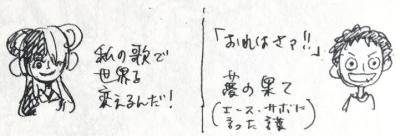 私の歌で
世界を
変えるんだ!
「おれはさァ!!」
夢の果て
(エース・サボに
言った言葉)